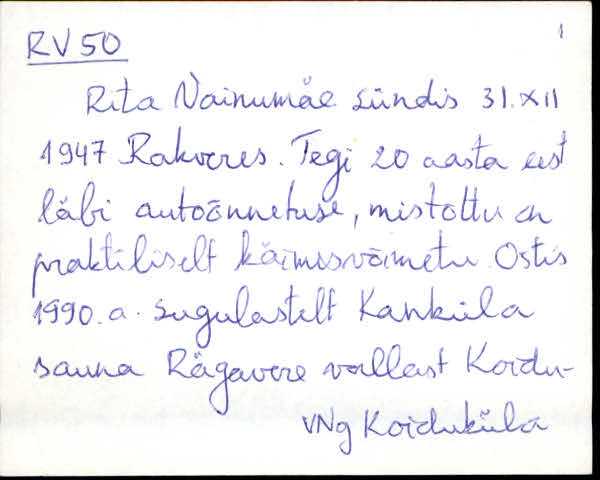 1
RV 50
Rita Vainumäe sündis 31. XII
1947 Rakveres. Tegi 20 aasta eest
läbi autoõnnetuse, mistõttu on
praktiliselt käimisvõimetu. Ostis
1990. a. sugulastelt Kanküla
sauna Rägavere vallast Koidu-
VNg Koiduküla